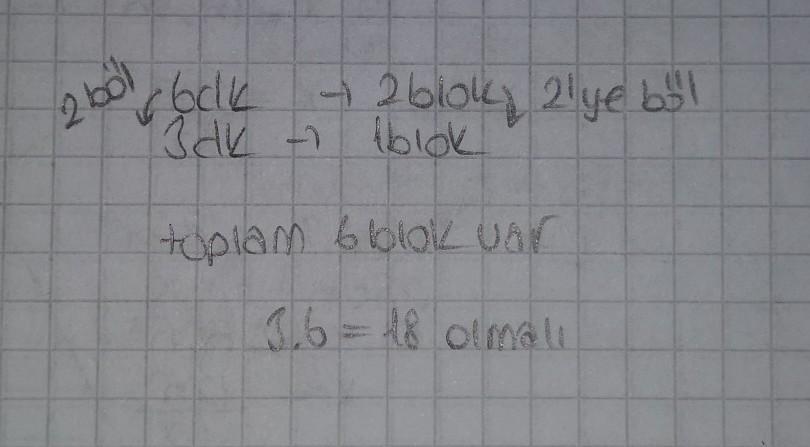 2 böl 6dk → 2blok 2'ye böl
3dk → 1blok
toplam 6 blok var
3.6 = 18 olmalı